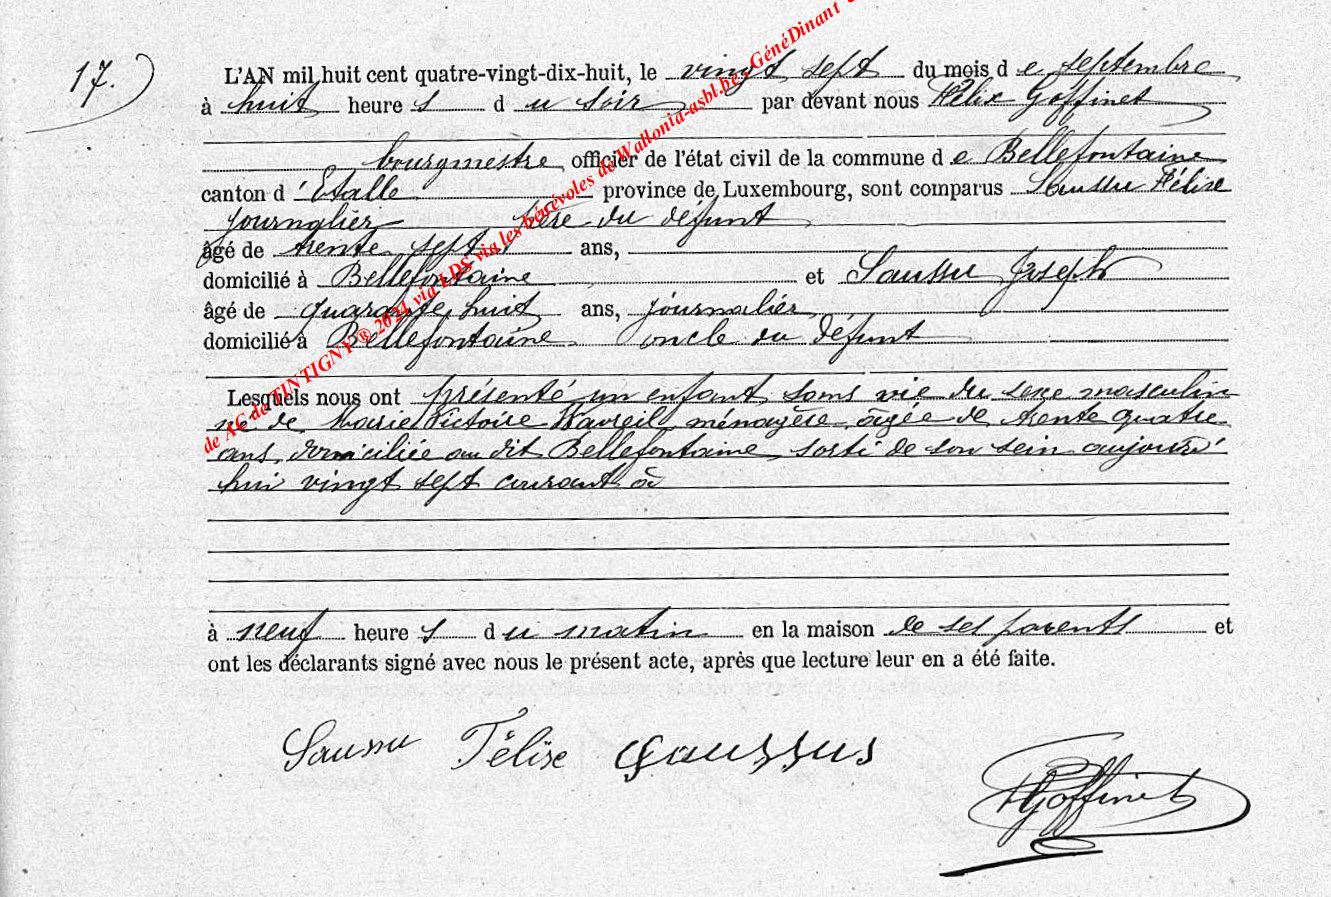 17.
L'AN mil huit cent quatre-vingt-dix-huit, le vingt sept du mois de septembre
à huit heures du soir par devant nous Félix Goffinet
bourgmestre, officier de l'état civil de la commune de Bellefontaine
canton d'Etalle province de Luxembourg, sont comparus Saussu Félise
journalier père du défunt
âgé de trente sept ans,
domicilié à Bellefontaine et Saussu Joseph
âgé de quarante huit ans, journalier
domicilié à Bellefontaine oncle du défunt
Lesquels nous ont présenté un enfant sans vie du sexe masculin
né de Marie Victoire ménagère âgée de trente quatre
ans, domiciliée au dit Bellefontaine, sorti de son sein aujourd'
hui vingt sept courant à
à neuf heures du matin en la maison de ses parents et
ont les déclarants signé avec nous le présent acte, après que lecture leur en a été faite.
Saussu Félise Saussus Goffinet
de AC de TINTIGNY ® 2021 via LDS via les bénévoles de Wallonia-asbl.be - GénéDinant